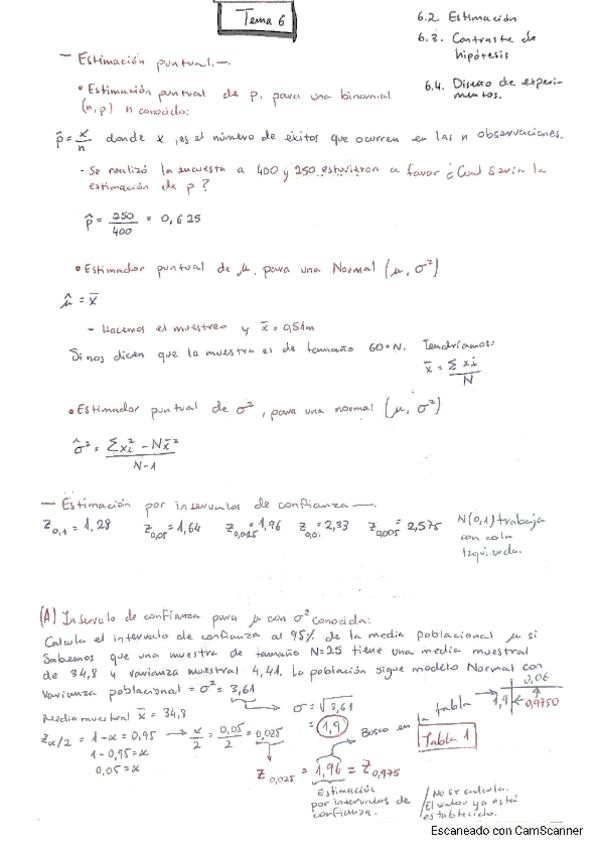 Tema 6
6.2. Estimación
6.3. Contraste de
hipótesis
6.4. Diseño de experi-
mentos.
— Estimación puntual.—.
• Estimación puntual de p. para una binomial
(n,p) n conocido:
p̂ = x/n donde x, es el número de éxitos que ocurren en las n observaciones.
- Se realizó la encuesta a 400 y 250 estuvieron a favor ¿Cual sería la
estimación de p?
p̂ = 250/400 = 0,625
• Estimador puntual de μ. para una Normal (μ, σ²)
μ̂ = x̄
- Hacemos el muestreo y x̄ = 0,51m
Si nos dicen que la muestra es de tamaño 60=N. Tendríamos:
x̄ = Σ xi / N
• Estimador puntual de σ², para una normal (μ, σ²)
σ̂² = Σxi² - Nx̄² / N-1
— Estimación por intervalos de confianza —.
Z0,1 = 1,28 Z0,05 = 1,64 Z0,025 = 1,96 Z0,01 = 2,33 Z0,005 = 2,575 N(0,1) trabaja
con cola
Izquierda.
(A) Intervalo de confianza para μ con σ² conocida:
Calcula el intervalo de confianza al 95% de la media poblacional μ si
Sabemos que una muestra de tamaño N=25 tiene una media muestral
de 34,8 y varianza muestral 4,41. La población sigue modelo Normal con
Varianza poblacional = σ² = 3,61
σ = √3,61
= 1,9
Media muestral x̄ = 34,8
Zα/2 = 1-α = 0,95 → α/2 = 0,05/2 = 0,025
1-0,95=α
0,05=α
Z0,025 = 1,96 = Z0,975
Busco en la tabla
Tabla 1
0,06
1,9 0,9750
Estimación
por intervalos de
confianza.
No se calcula.
El valor ya está
establecido.
Escaneado con CamScanner